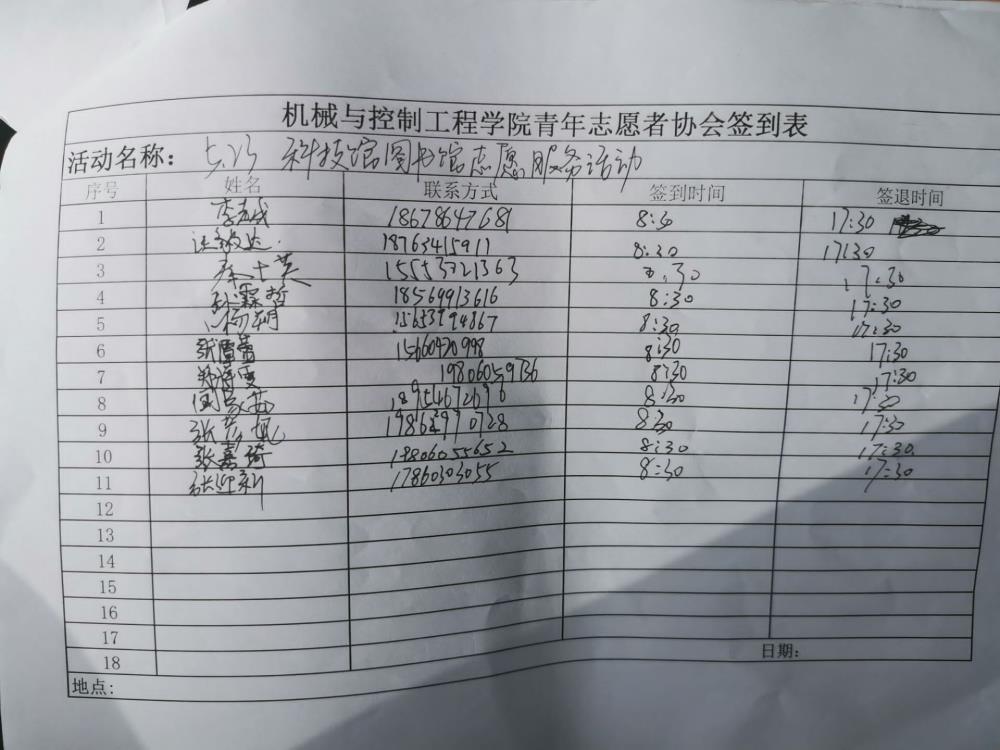 机械与控制工程学院青年志愿者协会签到表
活动名称： 5.23 科技馆图书馆志愿服务活动
序号 姓名 联系方式 签到时间 签退时间
1 18678647681 8:30 17:30
2 18763415911 8:30 17:30
3 15553721363 8:30 17:30
4 孙霖哲 18569913616 8:30 17:30
5 杨朝 8:30 17:30
6 张雪蕾 15660470998 8:30 17:30
7 19806059736 8:30 17:30
8 18954672696 8:30 17:30
9 8:30 17:30
10 张嘉琦 19806055652 8:30 17:30
11 张迎新 17860303055 8:30 17:30
12
13
14
15
16
17
18 日期：
地点: